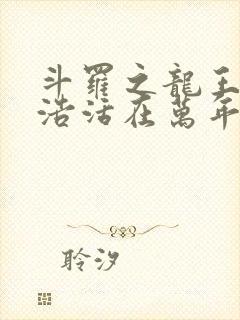 斗羅之龍王
浩活在萬年
聆汐